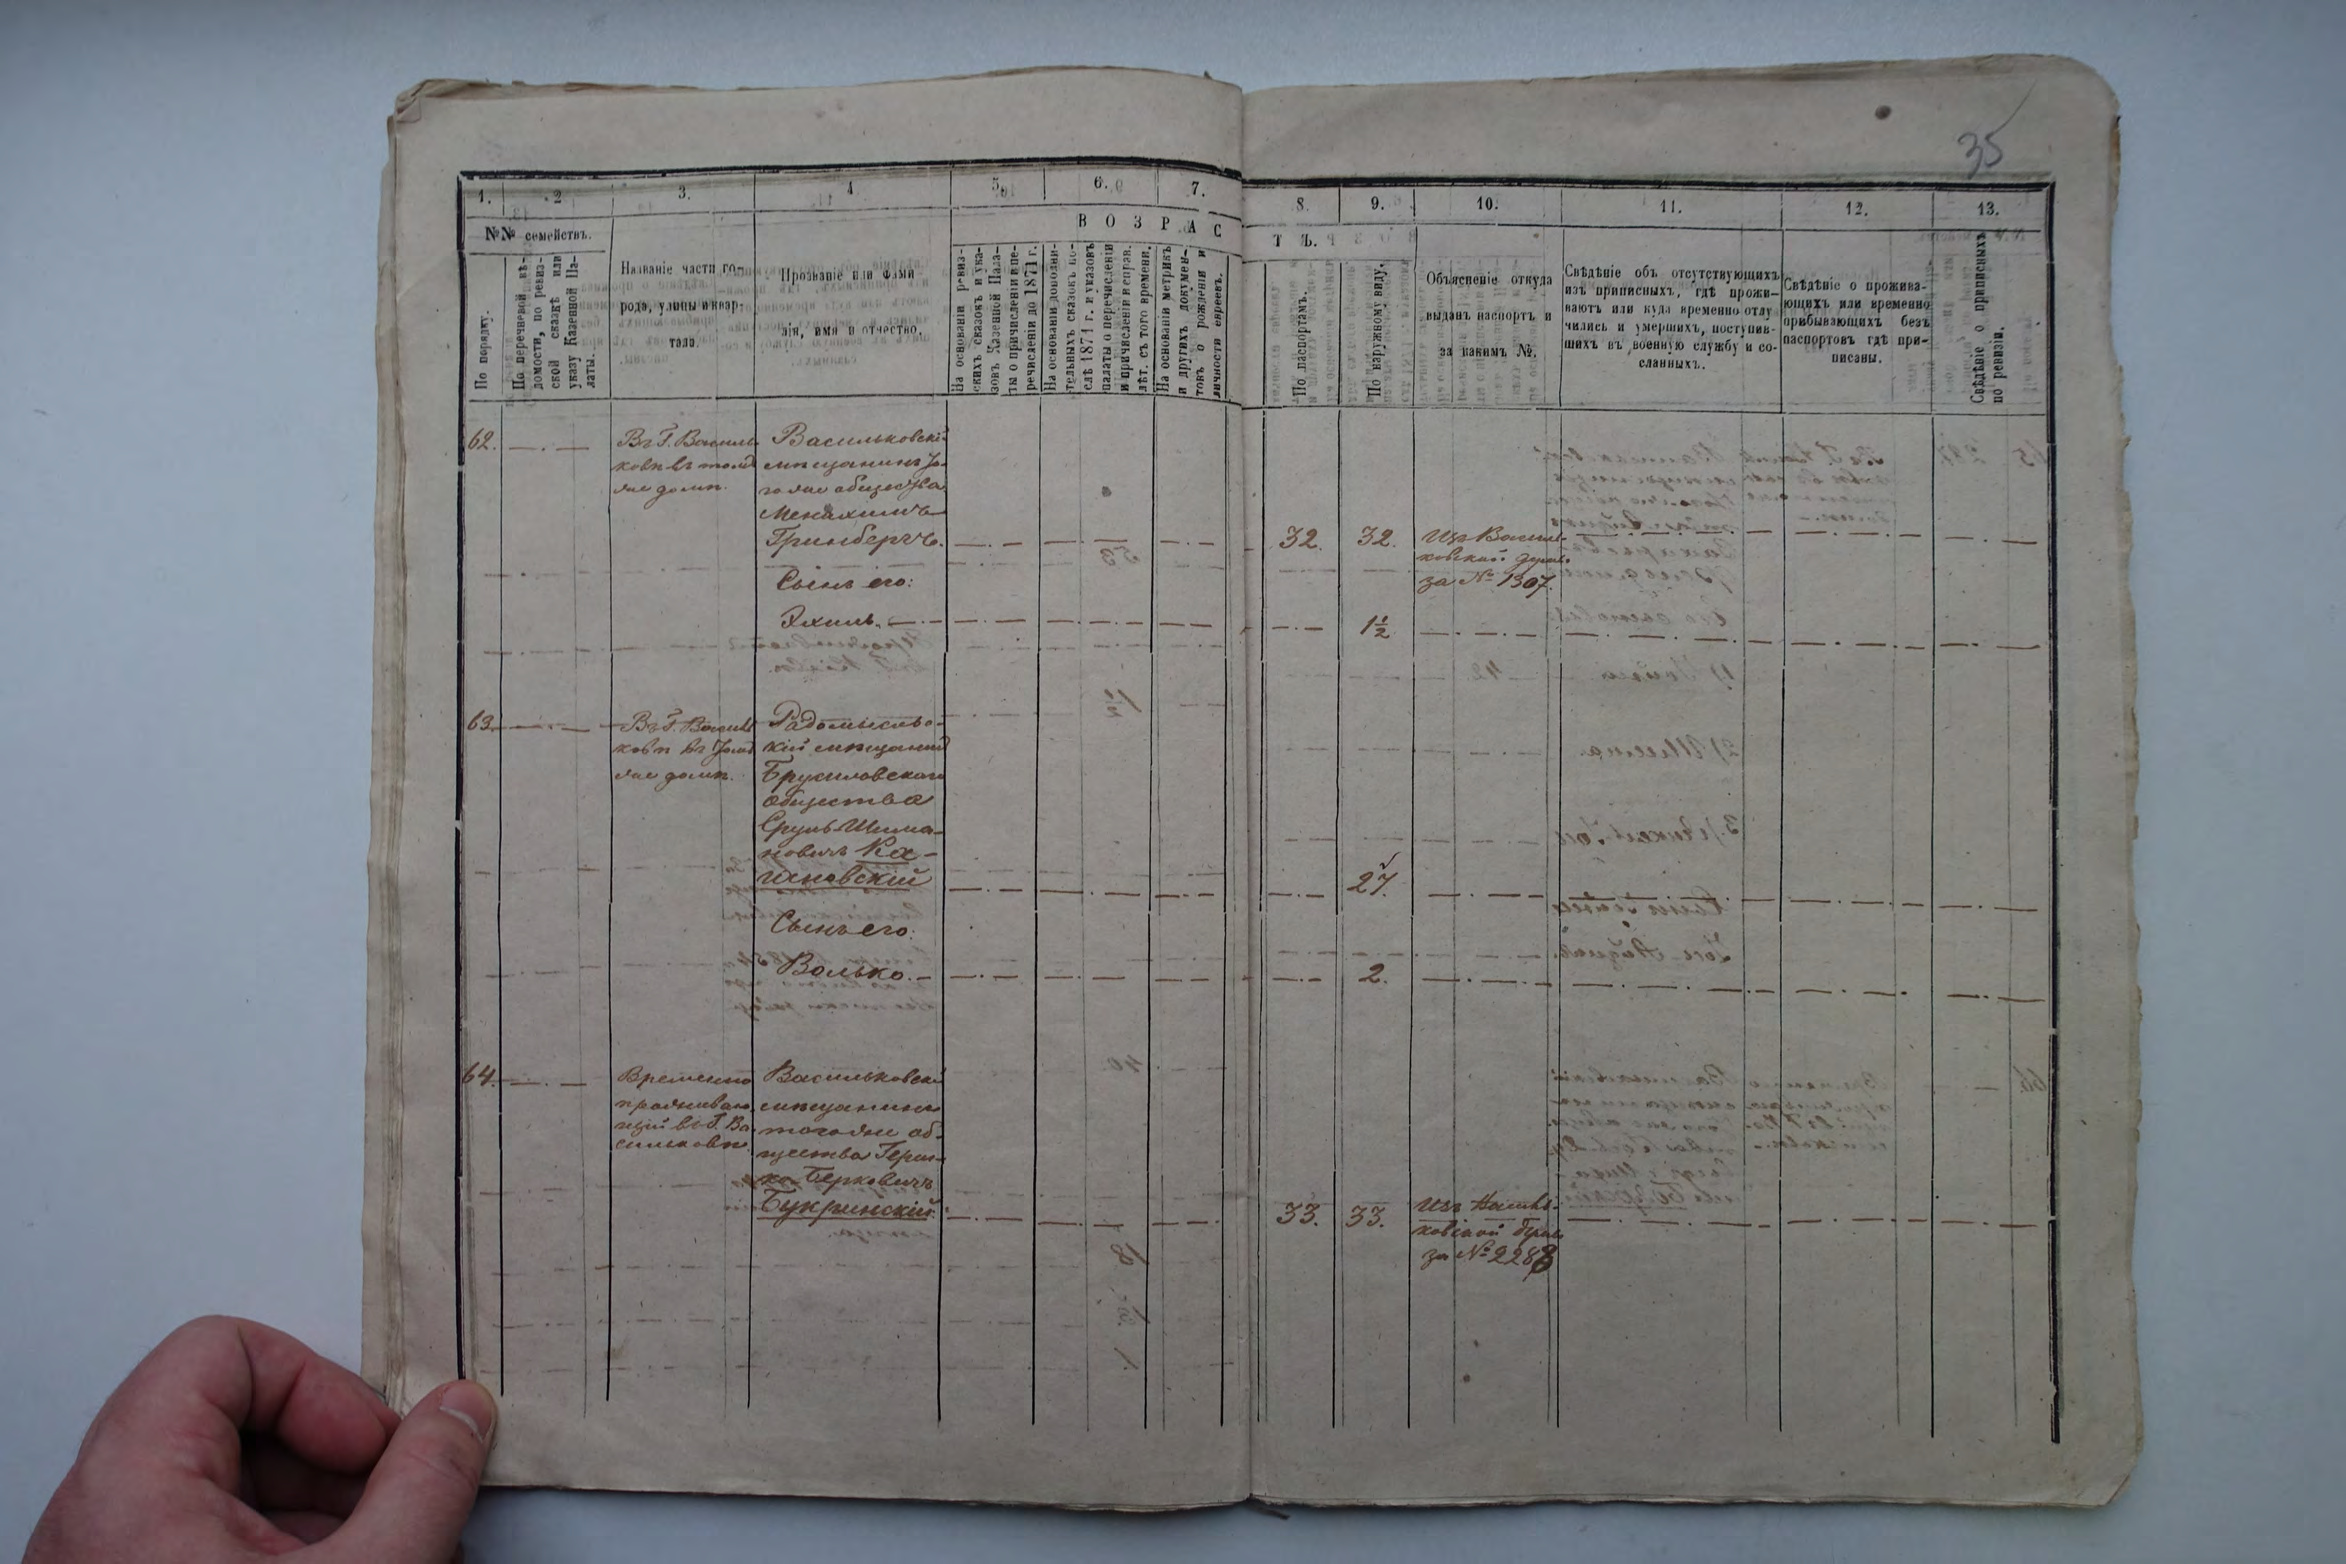 35
1. 2 3. 4 5. 6. 7. 8. 9. 10. 11. 12. 13.
№№ семействъ.
В О З Р А С Т Ъ.
По порядку.
По перечневой вѣ-
домости, по ревиз-
ской сказкѣ или
указу Казенной Па-
латы.
Названіе части го-
рода, улицы и квар-
тала.
Прозваніе или фами
лія, имя и отчество.
На основаніи ревиз-
скихъ сказокъ и ука-
зовъ Казенной Пала-
ты о причисленіи и пе-
речисленіи до 1871 г.
На основаніи дополни-
тельныхъ сказокъ по-
слѣ 1871 г. и указовъ
палаты о перечисленіи
и причисленіи и справ.
лѣт. съ того времени.
На основаніи метрикъ
и другихъ докумен-
товъ о рожденіи и
личности евреевъ.
По паспортамъ.
По наружному виду.
Объясненіе откуда
выданъ паспортъ и
за какимъ №.
Свѣдѣніе объ отсутствующихъ
изъ приписныхъ, гдѣ прожи-
ваютъ или куда временно отлу
чились и умершихъ, поступив-
шихъ въ военную службу и со-
сланныхъ.
Свѣдѣніе о прожива-
ющихъ или временно
прибывающихъ безъ
паспортовъ гдѣ при-
писаны.
Свѣдѣніе о приписныхъ
по ревизіи.
62.
Въ Г. Василь-
ковѣ въ томъ
же домѣ.
Васильковскій
мѣщанинъ то-
гоже общества
Менахимъ
Гринбергъ.
32. 32.
Изъ Василь-
ковской Думы
за № 1307.
Сынъ его:
Эхиль. 1½
63.
Въ Г. Василь
ковѣ въ томъ
же домѣ.
Радомысль-
кій мѣщанинъ
Брусиловскаго
общества
Сруль Шима-
новичъ Ка-
гановскій
27.
Сынъ его:
Волько. 2.
64.
Временно
проживаю
щій въ Г. Ва
сильковѣ.
Васильковскій
мѣщанинъ
тогоже об-
щества Герш-
ко Берковичъ
Букринскій.
33. 33.
Изъ Василь-
ковской Думы
за № 2288